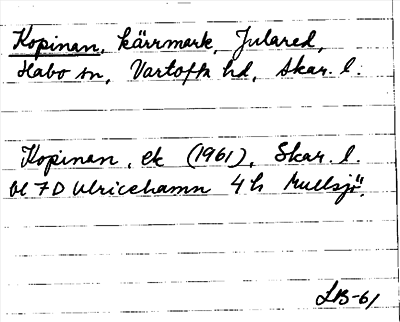 Kopinan, kärrmark, Julared,
Habo sn, Vartofta hd, Skar. l.
Kopinan, ek (1961), Skar. l.
bl 7D Ulricehamn 4h Mullsjö.
LB-61